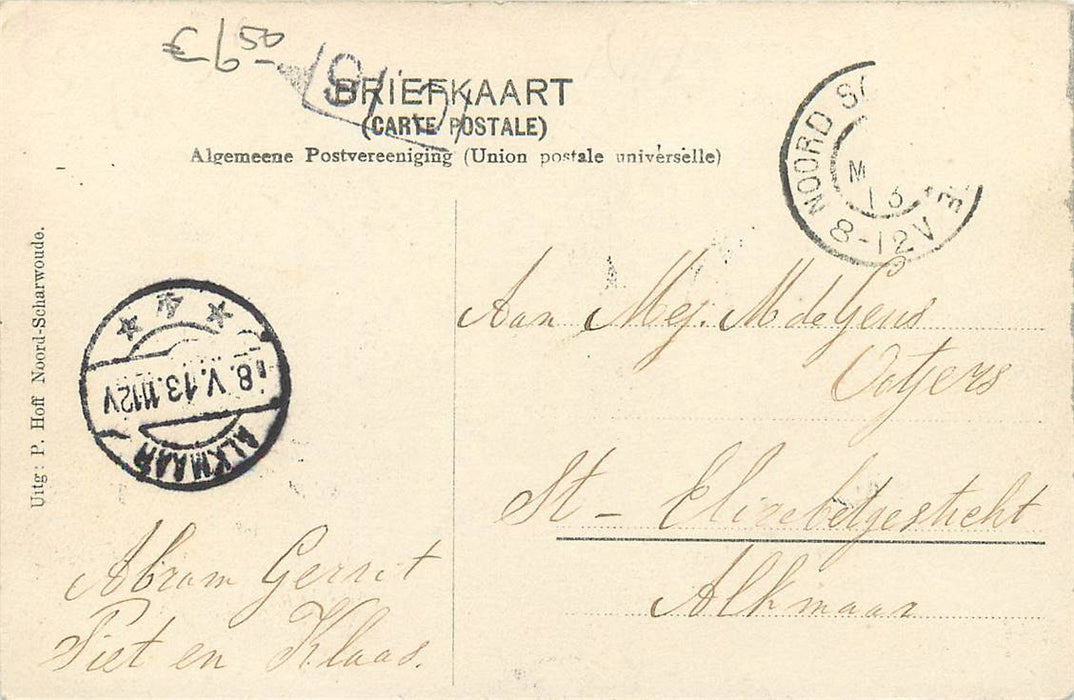 € 6,50
BRIEFKAART
(CARTE POSTALE)
Algemeene Postvereeniging (Union postale universelle)
NOORD
8-12V
Uitg: P. Hoff Noord-Scharwoude.
8.V.13.1112V
ALKMAAR
Aan Mej. M de Geus
Ootjers
St - Elizebetgesticht
Alkmaar
Abram Gerrit
Piet en Klaas.